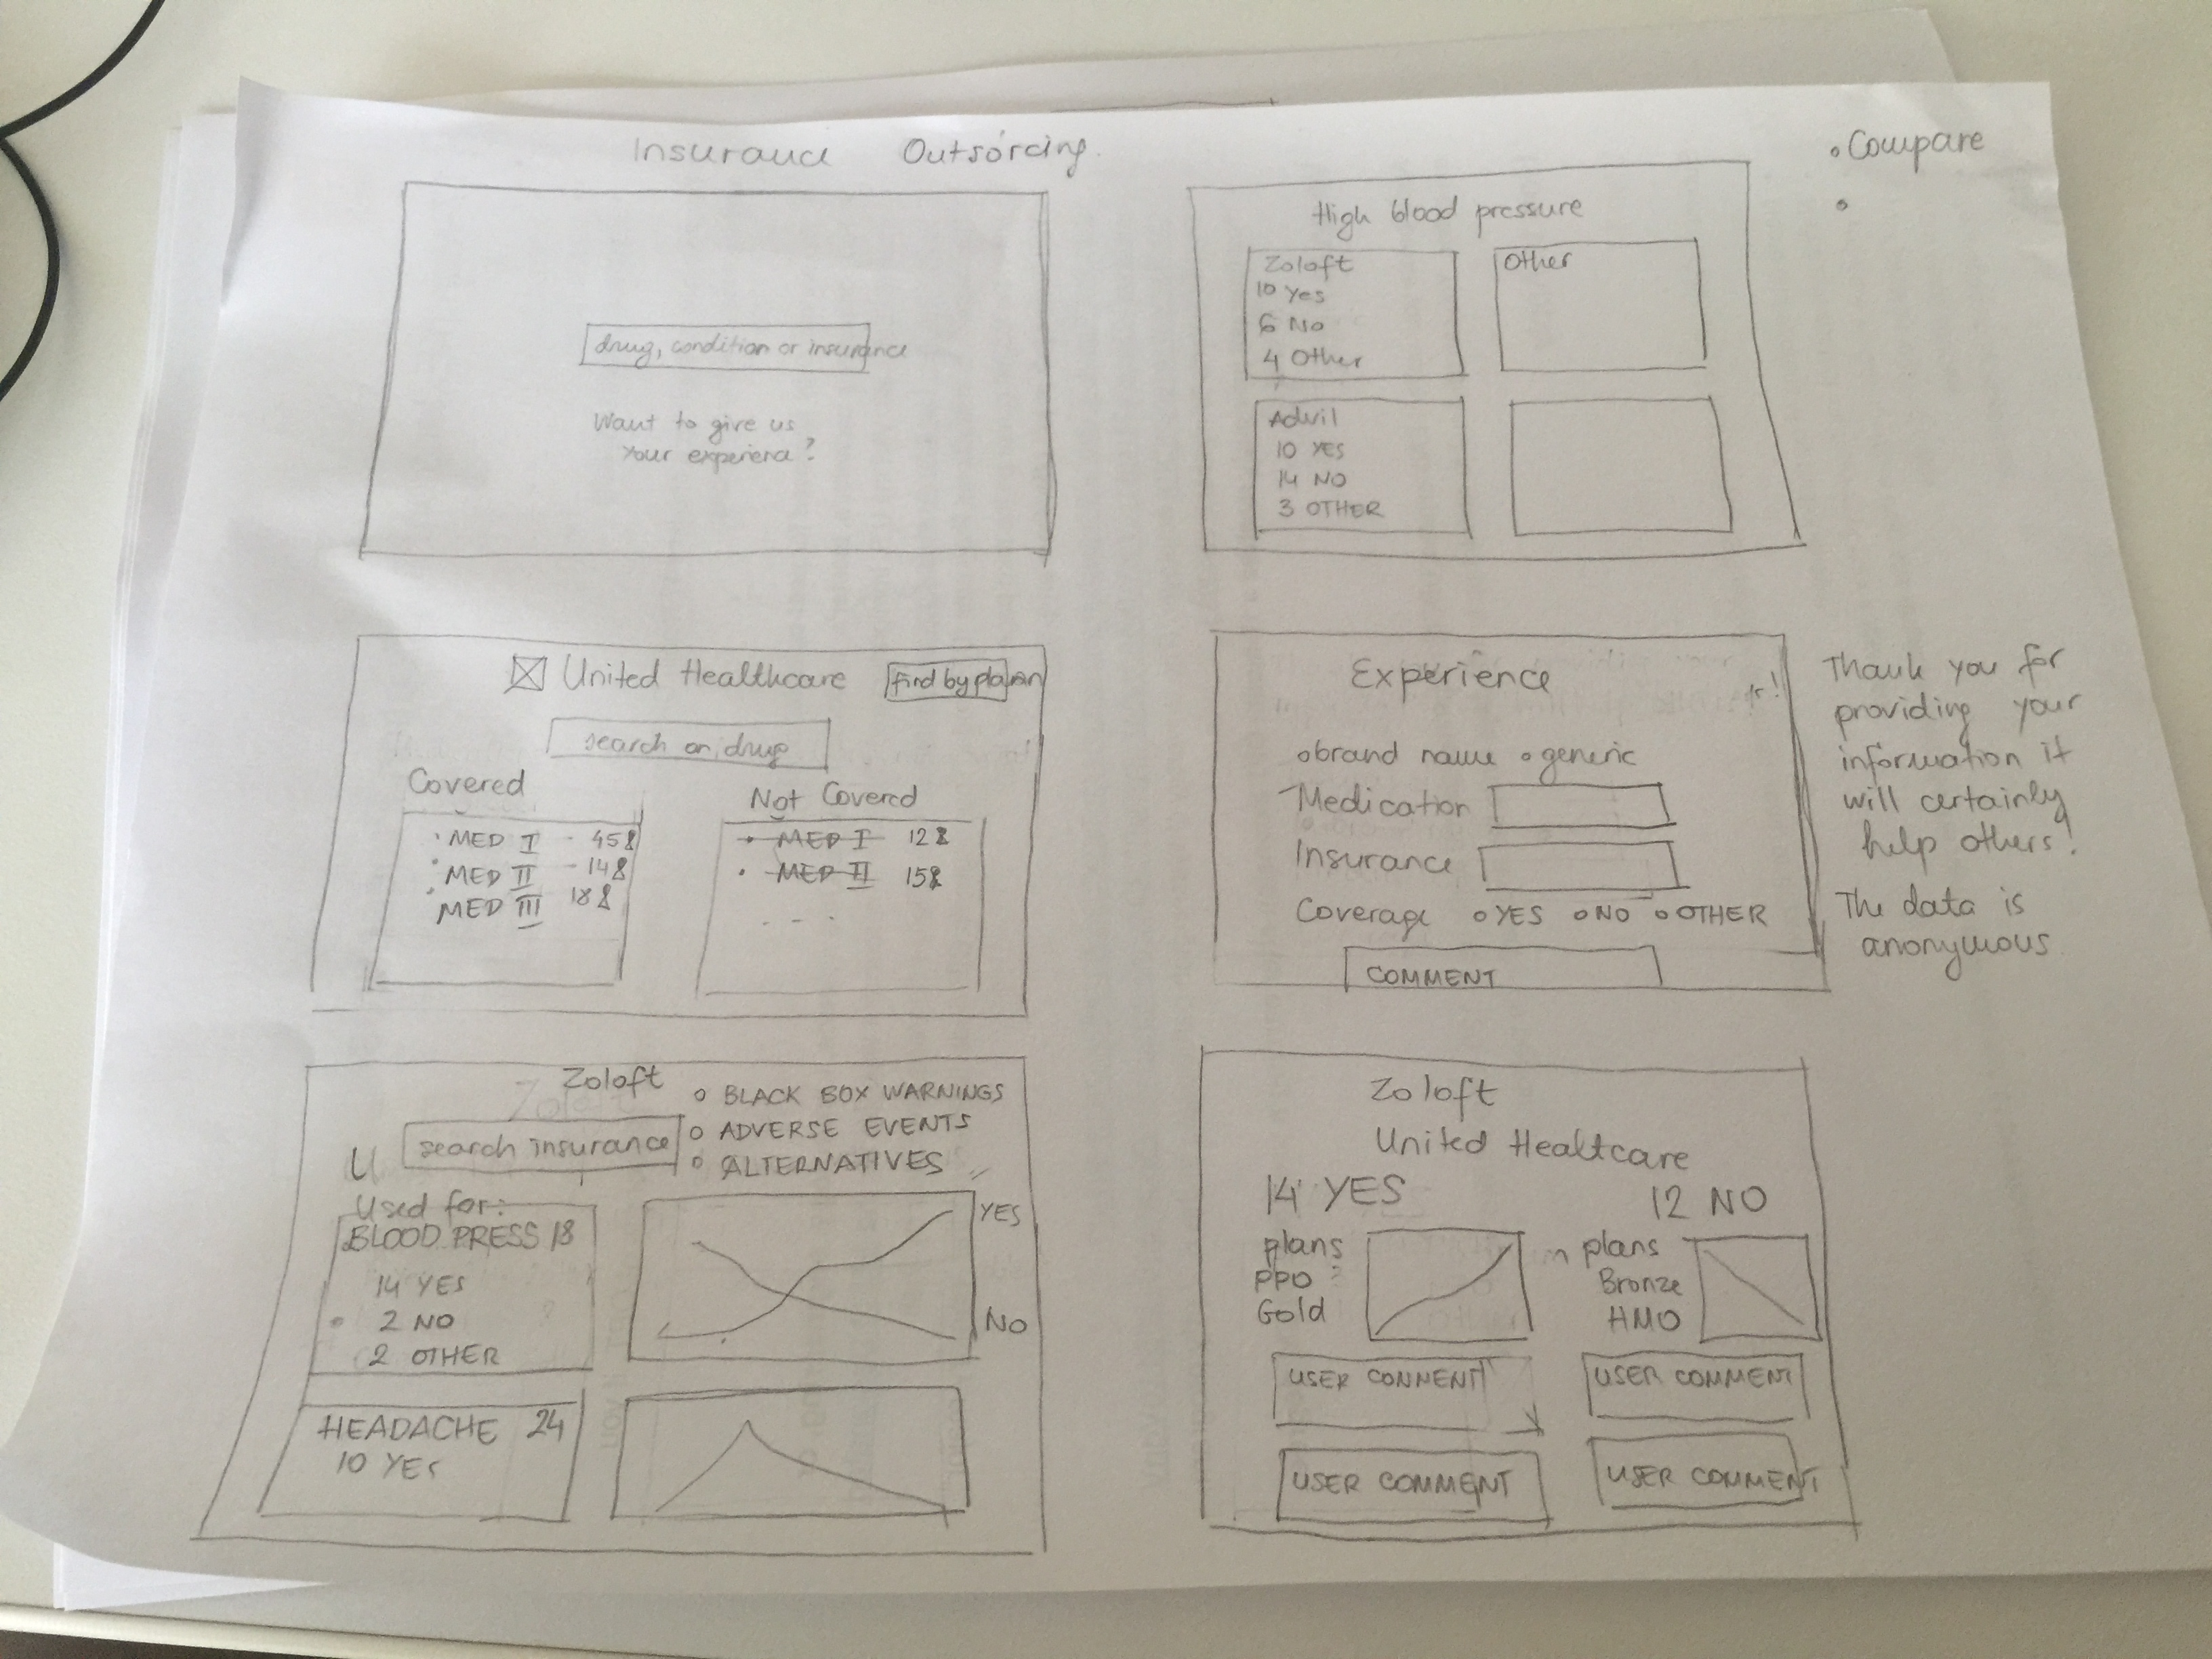 Insurance Outsorcing.
• Compare
•
drug, condition or insurance
Want to give us
your experience?
High blood pressure
Zoloft
10 Yes
6 No
4 Other
Other
Advil
10 YES
14 NO
3 OTHER
United Healthcare
find by plan
search on drug
Covered
• MED I - 45$
• MED II - 14$
• MED III 18$
Not Covered
• MED I 12$
• MED II 15$
- - -
Experience
o brand name o generic
Medication
Insurance
Coverage o YES o NO o OTHER
COMMENT
Thank you for
providing your
information it
will certainly
help others!
The data is
anonymous
Zoloft
search insurance
o BLACK BOX WARNINGS
o ADVERSE EVENTS
o ALTERNATIVES
U
Used for:
BLOOD PRESS 18
14 YES
2 NO
2 OTHER
YES
NO
HEADACHE 24
10 YES
Zoloft
United Healtcare
14 YES
plans
PPO
Gold
USER COMMENT
USER COMMENT
12 NO
plans
Bronze
HMO
USER COMMENT
USER COMMENT